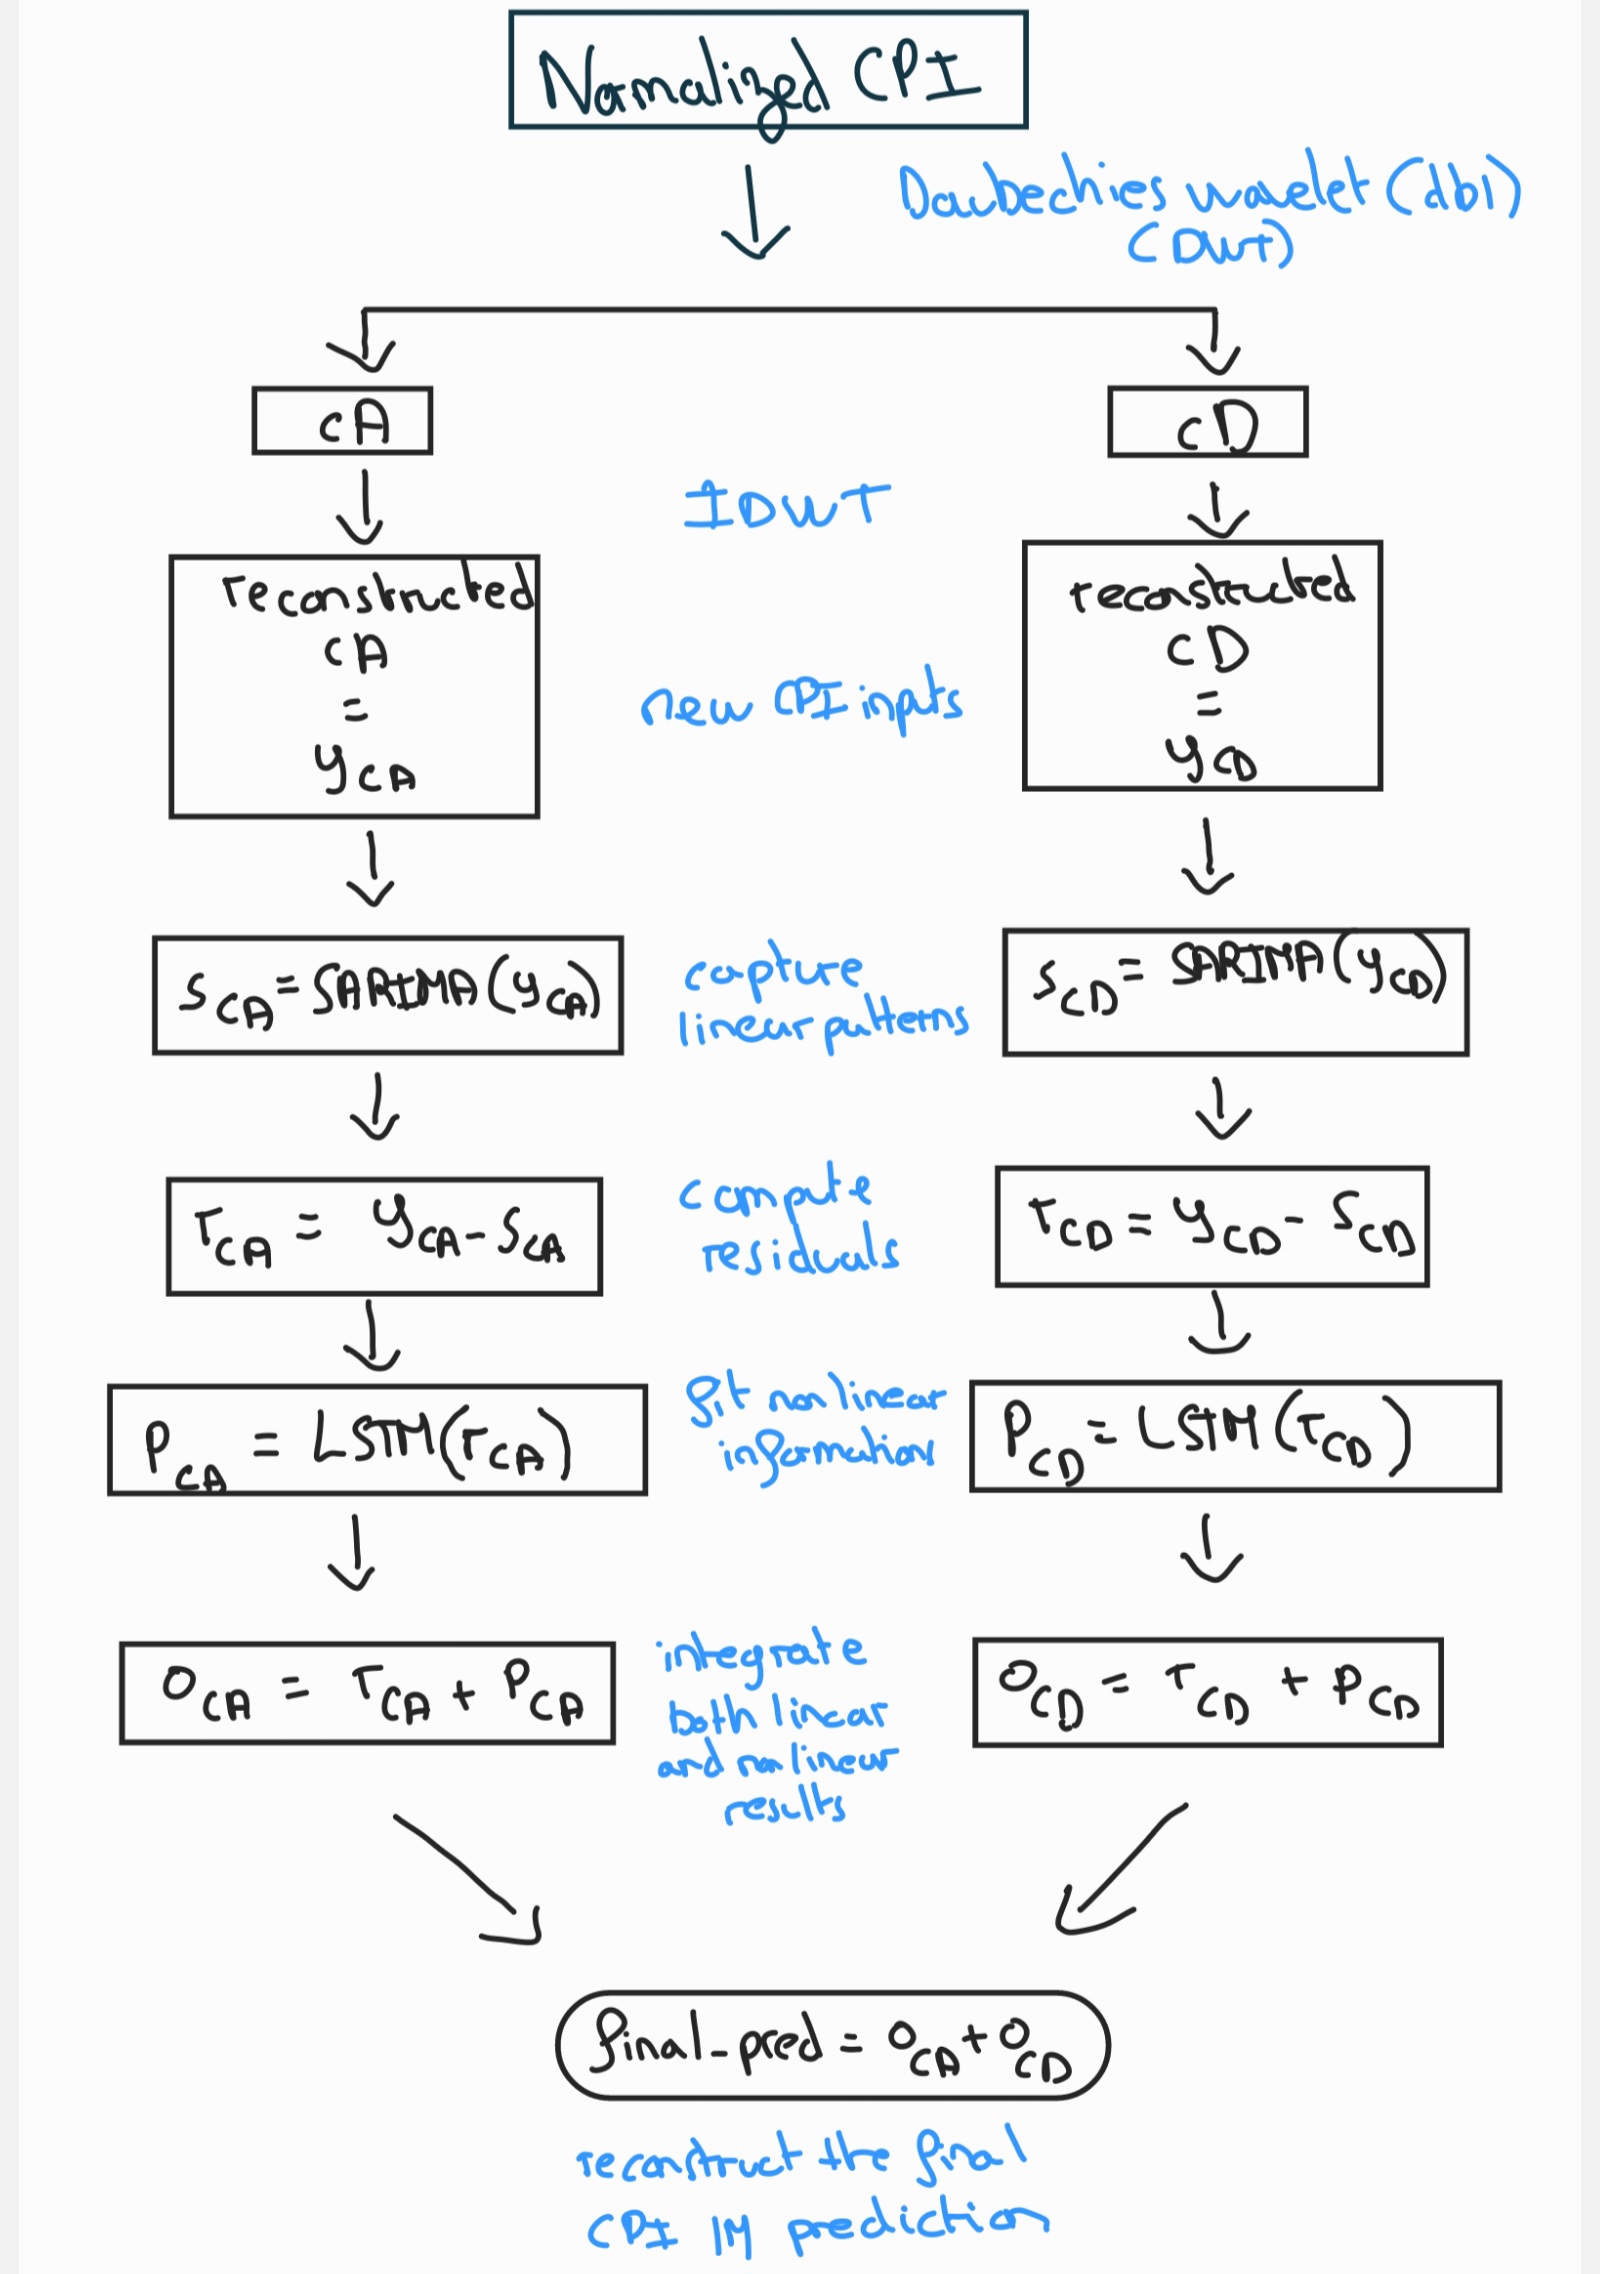 Normalized CPI
Daubechies wavelet (db1)
(DWT)
cA
cD
IDWT
reconstructed
cA
=
y_cA
new CPI inputs
reconstructed
cD
=
y_cD
s_cA = SARIMA(y_cA)
capture
linear patterns
s_cD = SARIMA(y_cD)
r_cA = y_cA - s_cA
compute
residuals
r_cD = y_cD - s_cD
p_cA = LSTM(r_cA)
fit nonlinear
information
p_cD = LSTM(r_cD)
o_cA = r_cA + p_cA
integrate
both linear
and nonlinear
results
o_cD = r_cD + p_cD
final_pred = o_cA + o_cD
reconstruct the final
CPI 1M prediction